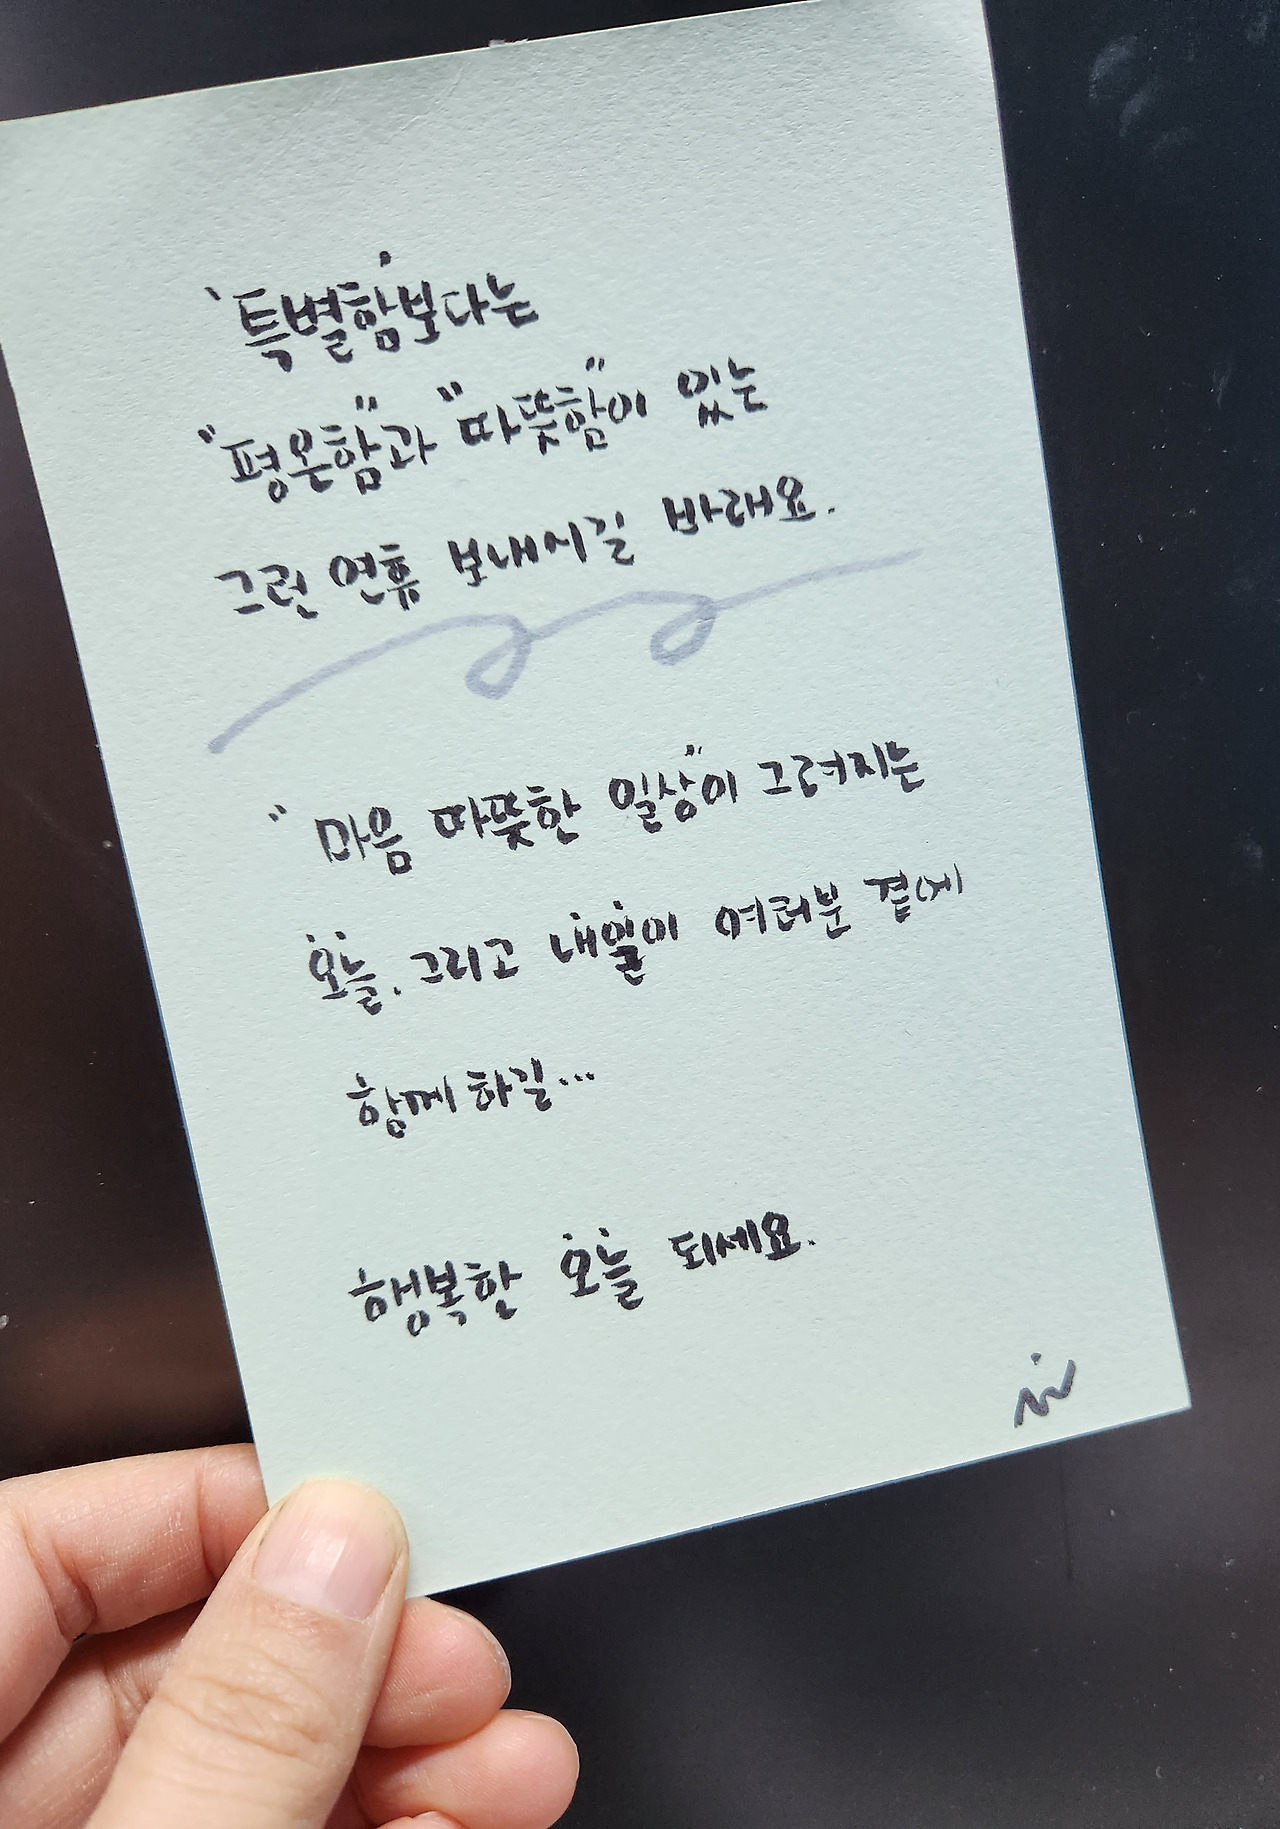 '특별함'보다는
"평온함"과 "따뜻함"이 있는
그런 연휴 보내시길 바래요.
"마음 따뜻한 일상"이 그려지는
오늘, 그리고 내일이 여러분 곁에
함께 하길...
행복한 오늘 되세요.